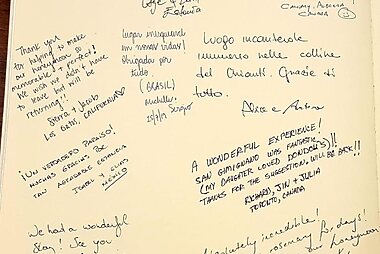 Estonia
Calgary, Alberta
Canada
Thank you
for helping to make
our honeymoon so
memorable + perfect!
We wish we didn't have
to leave but will be
returning!!
Sierra + Jacob
LOS GATOS, CALIFORNIA
lugar inesquecível
em nossas vidas!
obrigada por
tudo.
(BRASIL)
Michelle
Sergio
Luogo incantevole
immerso nelle colline
del Chianti. Grazie di
tutto.
Alice e
¡UN VERDADERO PARAÍSO!
MUCHAS GRACIAS POR
TAN AGRADABLE ESTANCIA
MEXICO
A WONDERFUL EXPERIENCE!
SAN GIMIGNANO WAS FANTASTIC
(MY DAUGHTER LOVED DONDOLI'S)!!
THANKS FOR THE SUGGESTION. WILL BE BACK!!
RICHARD, JIN + JULIA
TORONTO, CANADA
We had a wonderful
stay! See you
Absolutely incredible!
rosemary for days!
our honeymoon